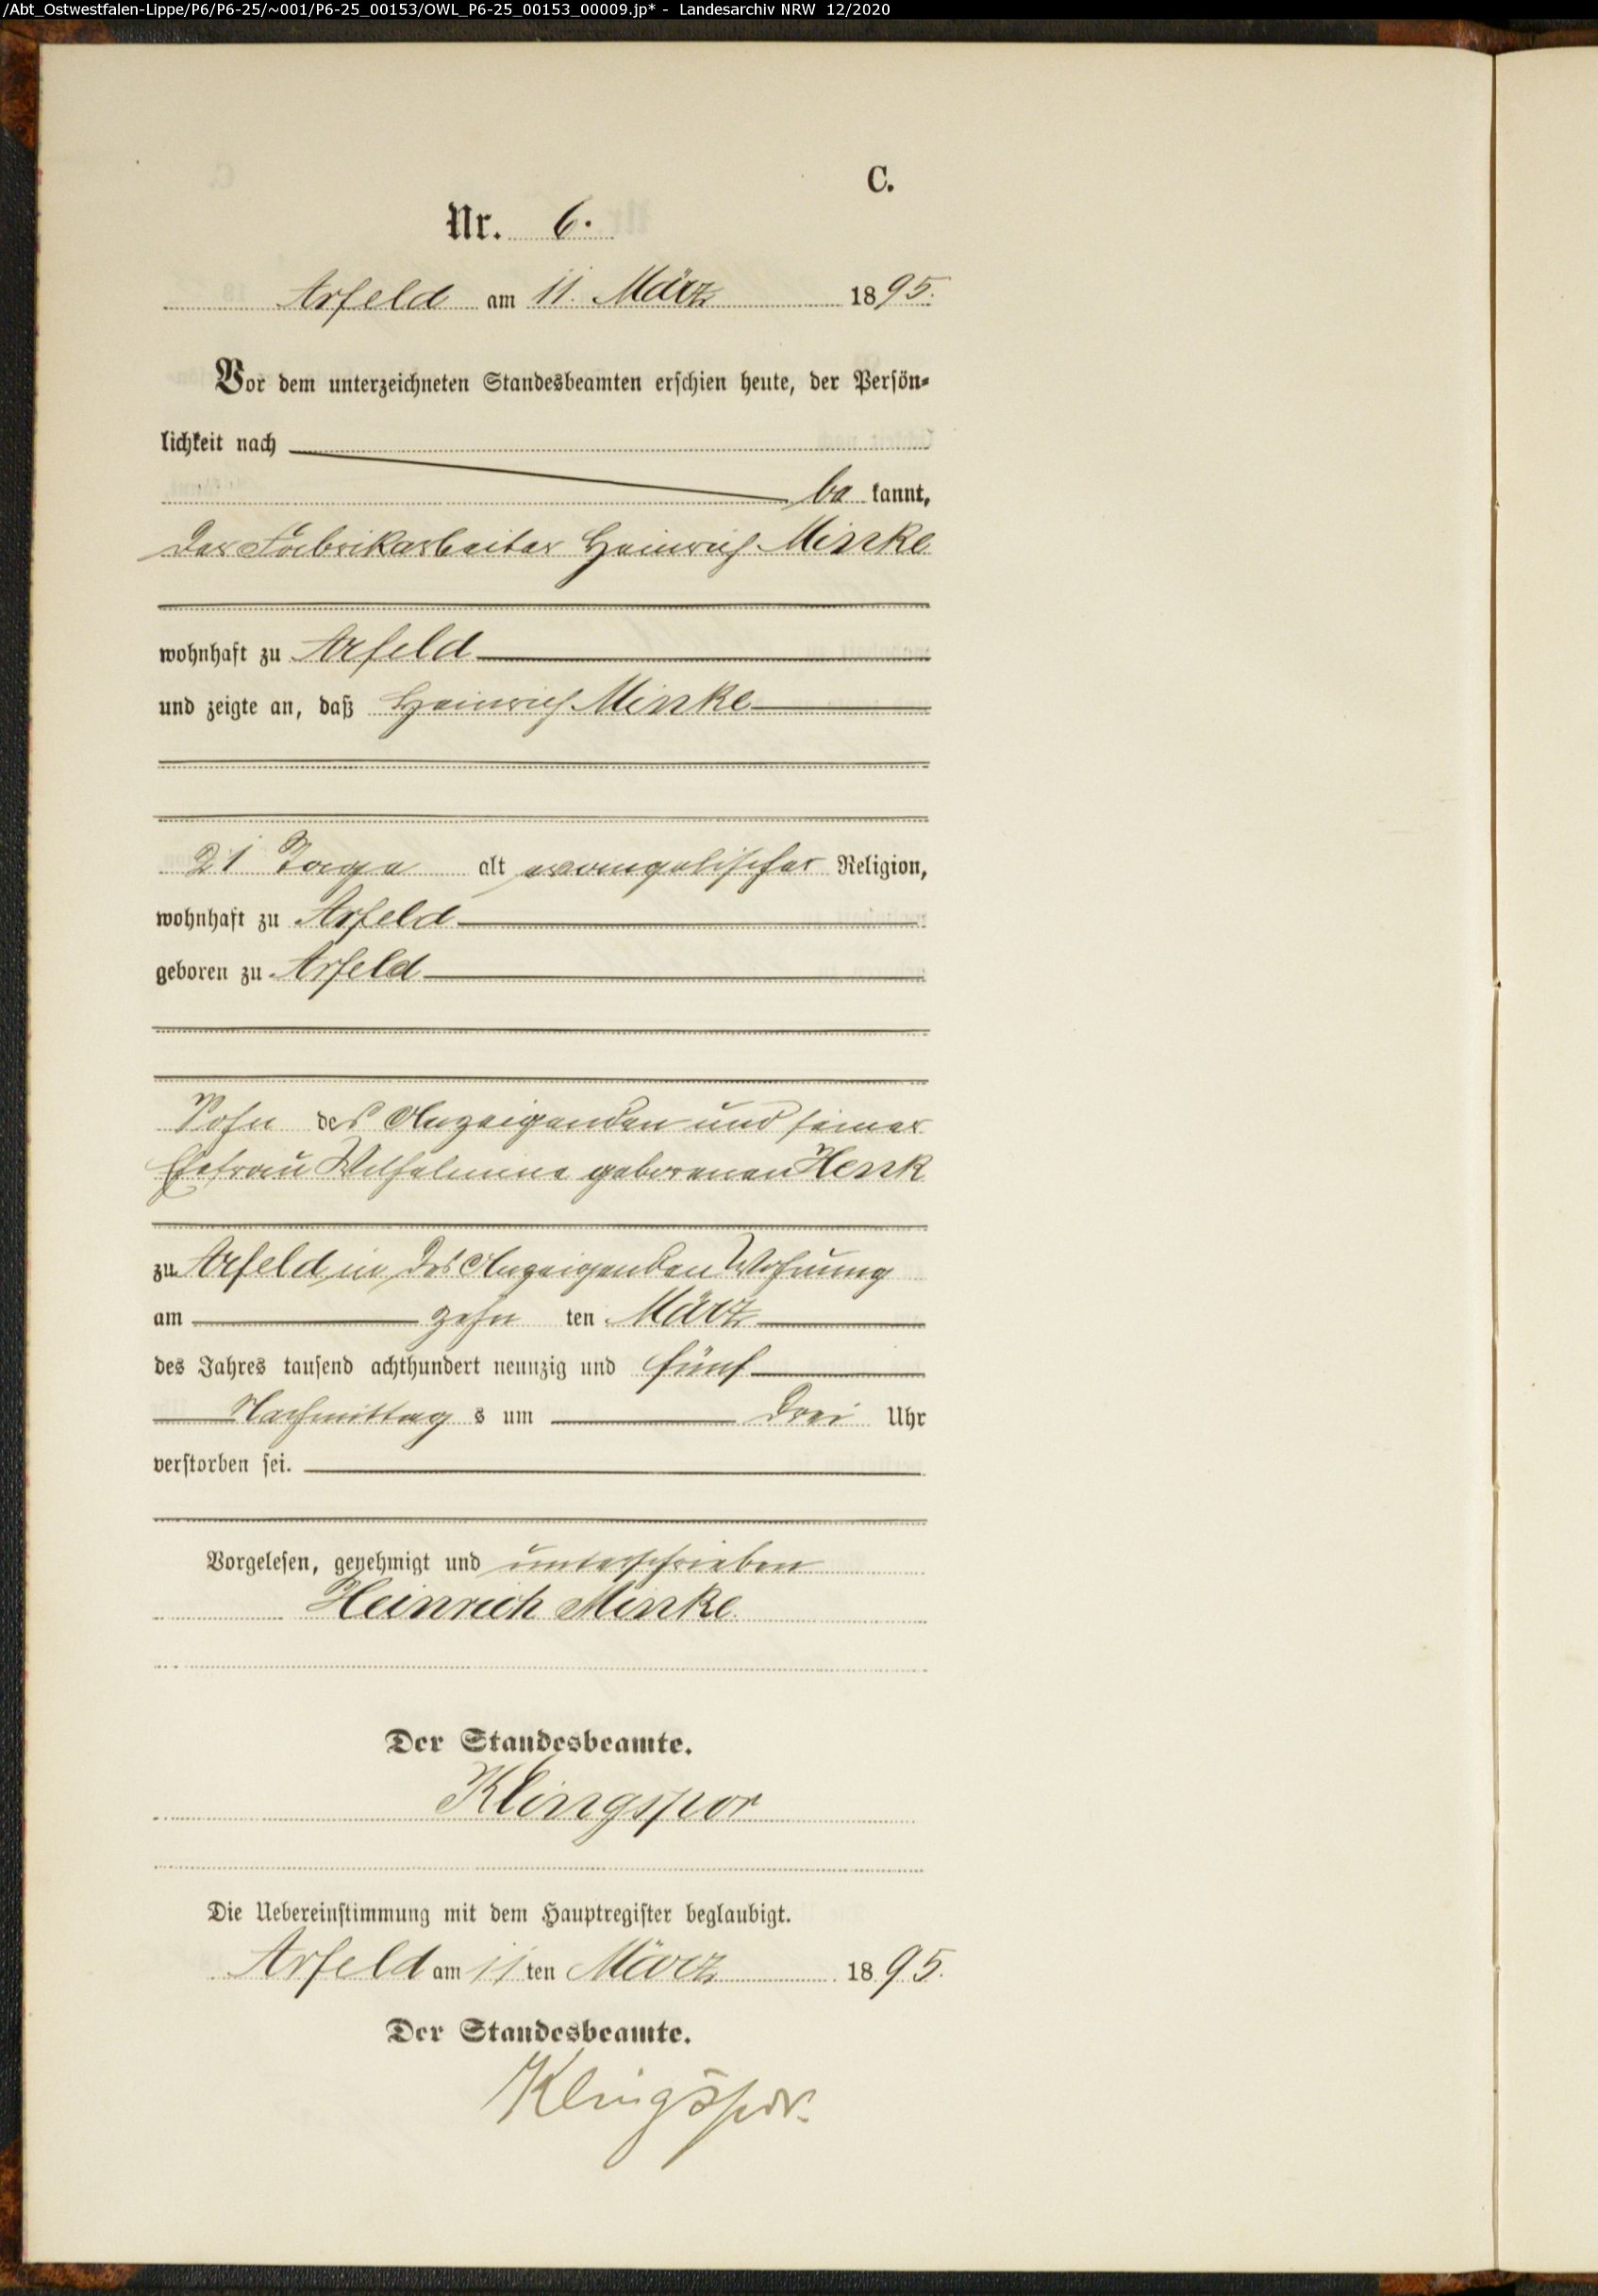 /Abt_Ostwestfalen-Lippe/P6/P6-25/~001/P6-25_00153/OWL_P6-25_00153_00009.jp* - Landesarchiv NRW 12/2020
C.
Nr. 6.
Arfeld am 11. März 1895.
Vor dem unterzeichneten Standesbeamten erschien heute, der Persön-
lichkeit nach
be kannt,
der Fabrikarbeiter Heinrich Minke
wohnhaft zu Arfeld
und zeigte an, daß Heinrich Minke
21 Tage alt evangelischer Religion,
wohnhaft zu Arfeld
geboren zu Arfeld
Sohn des Anzeigenden und seiner
Ehefrau Wilhelmine geborenen Henk
zu Arfeld in des Anzeigenden Wohnung
am zehn ten März
des Jahres tausend achthundert neunzig und fünf
Nachmittag s um drei Uhr
verstorben sei.
Vorgelesen, genehmigt und unterschrieben
Heinrich Minke
Der Standesbeamte.
Klingspor
Die Uebereinstimmung mit dem Hauptregister beglaubigt.
Arfeld am 11 ten März 1895.
Der Standesbeamte.
Klingspor.